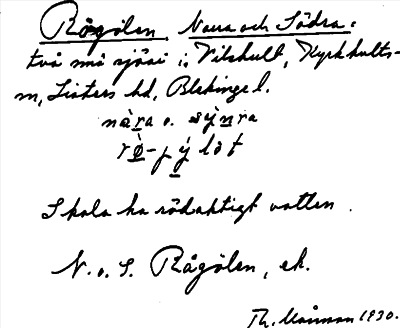 Rågölen, Norra och Södra:
två små sjöar i Vilshult, Kyrkhults-
sn, Listers hd, Blekinge l.
nàra o. sỳnra
rò-pý löt
Skola ha rödaktigt vatten.
N. o. S. Rågölen, ek.
Th. 1930.